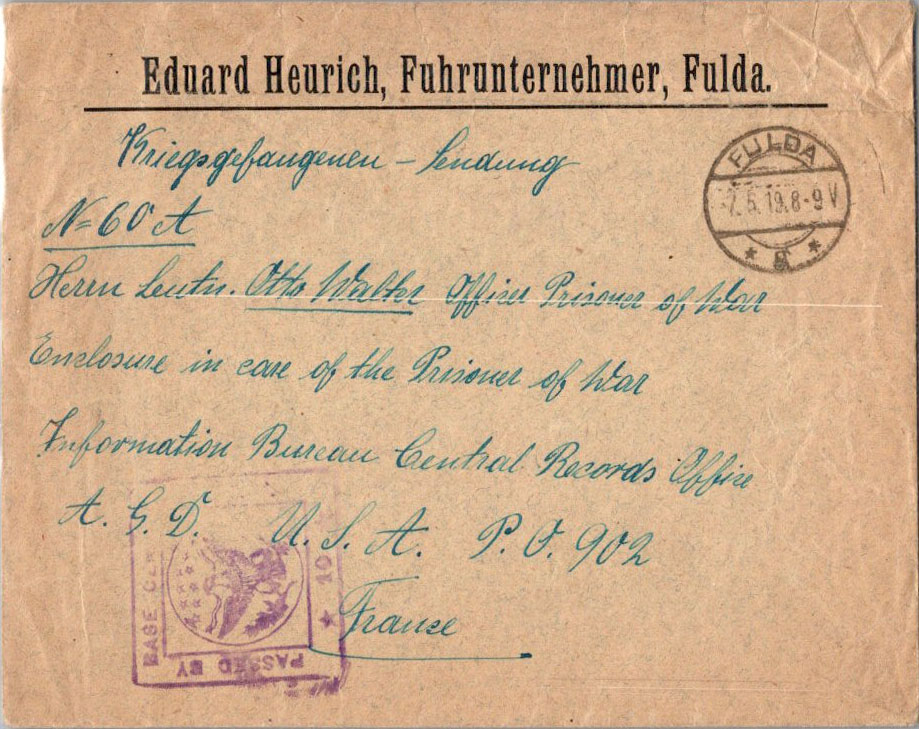 Eduard Heurich, Fuhrunternehmer, Fulda.
Kriegsgefangenen – Sendung
FULDA
-7.5.19.8-9V
* g *
N= 60 A
Herrn Leutn. Otto Walter Officer Prisoner of War
Enclosure in care of the Prisoner of War
Information Bureau Central Records Office
A. G. D. U. S. A. P. O. 902
France
PASSED BY
BASE